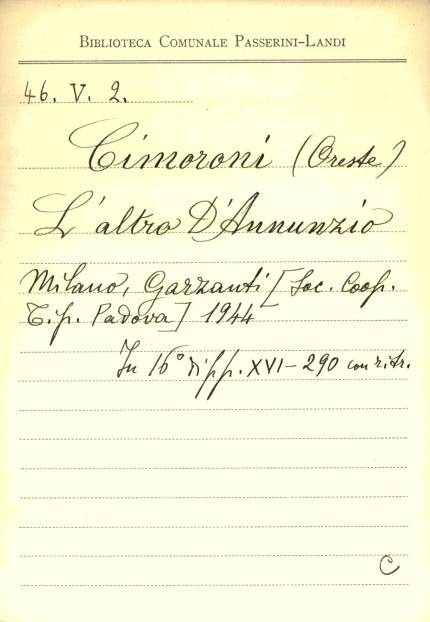 BIBLIOTECA COMUNALE PASSERINI-LANDI
46. V. 2.
Cimoroni (Oreste)
L'altro D'Annunzio
Milano, Garzanti [Soc. Coop.
Tip. Padova] 1944
In 16° di pp. XVI-290 con ritr.
C